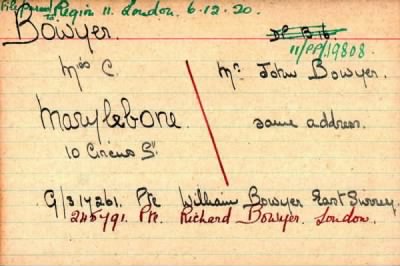 File passed to Regin 11. London. 6.12.20.
Bowyer.
11/PP/19808
Mrs C. Mr John Bowyer.
Marylebone. same address.
10 Circus St
G/317261. Pte William Bowyer East Surrey.
245791. Pte. Richard Bowyer. London.